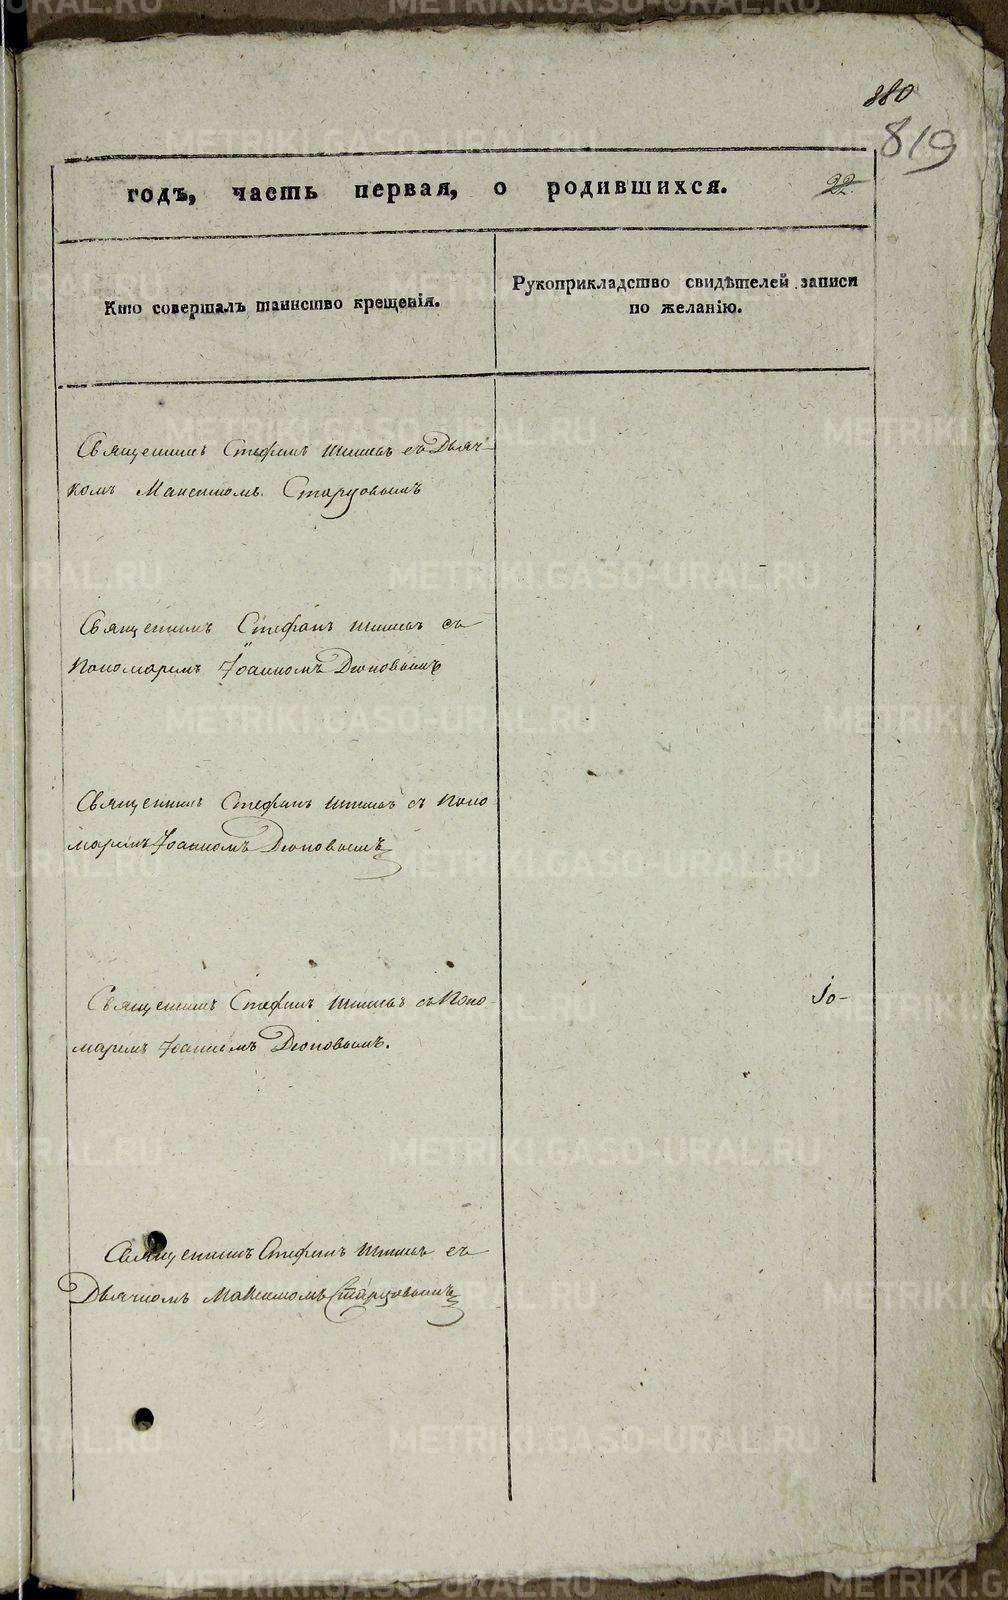 880
819
годъ, часть первая, о родившихся.
22
Кто совершалъ таинство крещенія.
Рукоприкладство свидѣтелей записи
по желанію.
Священникъ Стефанъ съ Дьяч-
комъ Максимомъ Старцовымъ
Священникъ Стефанъ съ
Пономаремъ Іоанномъ Дюповымъ
Священникъ Стефанъ съ Поно
маремъ Іоанномъ Дюповымъ
Священникъ Стефанъ съ Поно-
маремъ Іоанномъ Дюповымъ.
Священникъ Стефанъ съ
Дьячкомъ Максимомъ Старцовымъ
METRIKI.GASO-URAL.RU